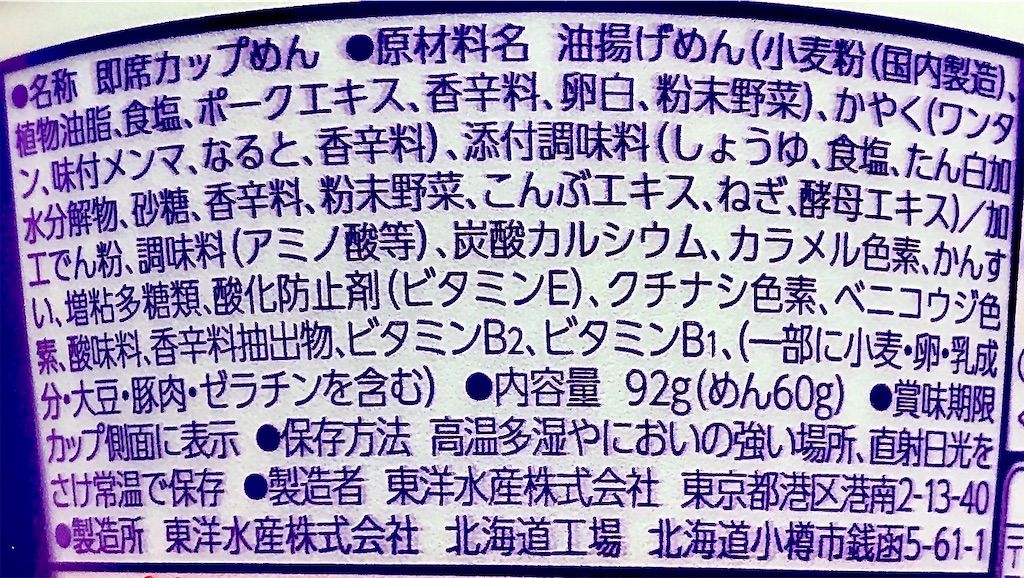 ●名称 即席カップめん ●原材料名 油揚げめん(小麦粉(国内製造)、
植物油脂、食塩、ポークエキス、香辛料、卵白、粉末野菜)、かやく(ワンタ
ン、味付メンマ、なると、香辛料)、添付調味料(しょうゆ、食塩、たん白加
水分解物、砂糖、香辛料、粉末野菜、こんぶエキス、ねぎ、酵母エキス)/加
工でん粉、調味料(アミノ酸等)、炭酸カルシウム、カラメル色素、かんす
い、増粘多糖類、酸化防止剤(ビタミンE)、クチナシ色素、ベニコウジ色
素、酸味料、香辛料抽出物、ビタミンB2、ビタミンB1、(一部に小麦・卵・乳成
分・大豆・豚肉・ゼラチンを含む) ●内容量 92g(めん60g) ●賞味期限
カップ側面に表示 ●保存方法 高温多湿やにおいの強い場所、直射日光を
さけ常温で保存 ●製造者 東洋水産株式会社 東京都港区港南2-13-40
●製造所 東洋水産株式会社 北海道工場 北海道小樽市銭函5-61-1